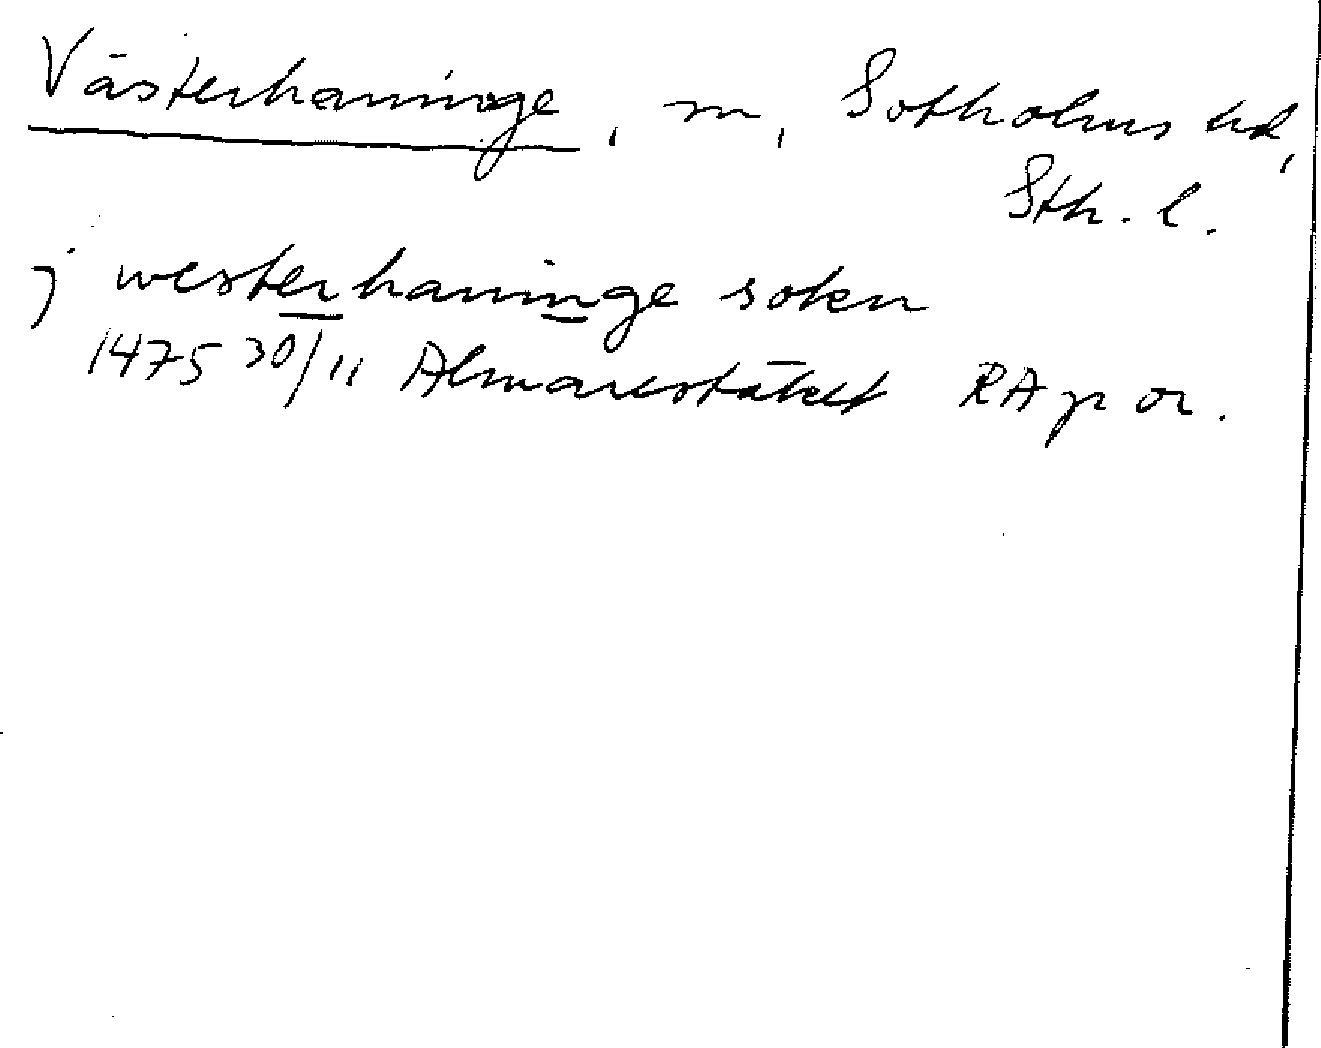 Västerhaninge, sn, Sotholms hd,
Sth. l.
j westerhaninge sokn
1475 30/11 Almarestäket RAp or.